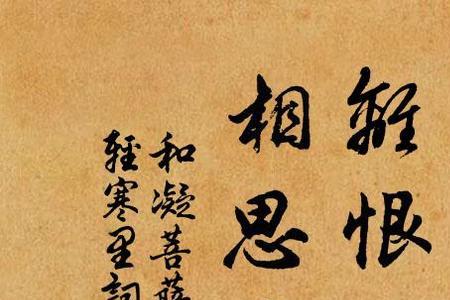 離恨
相思
和凝菩薩
輕寒里詞